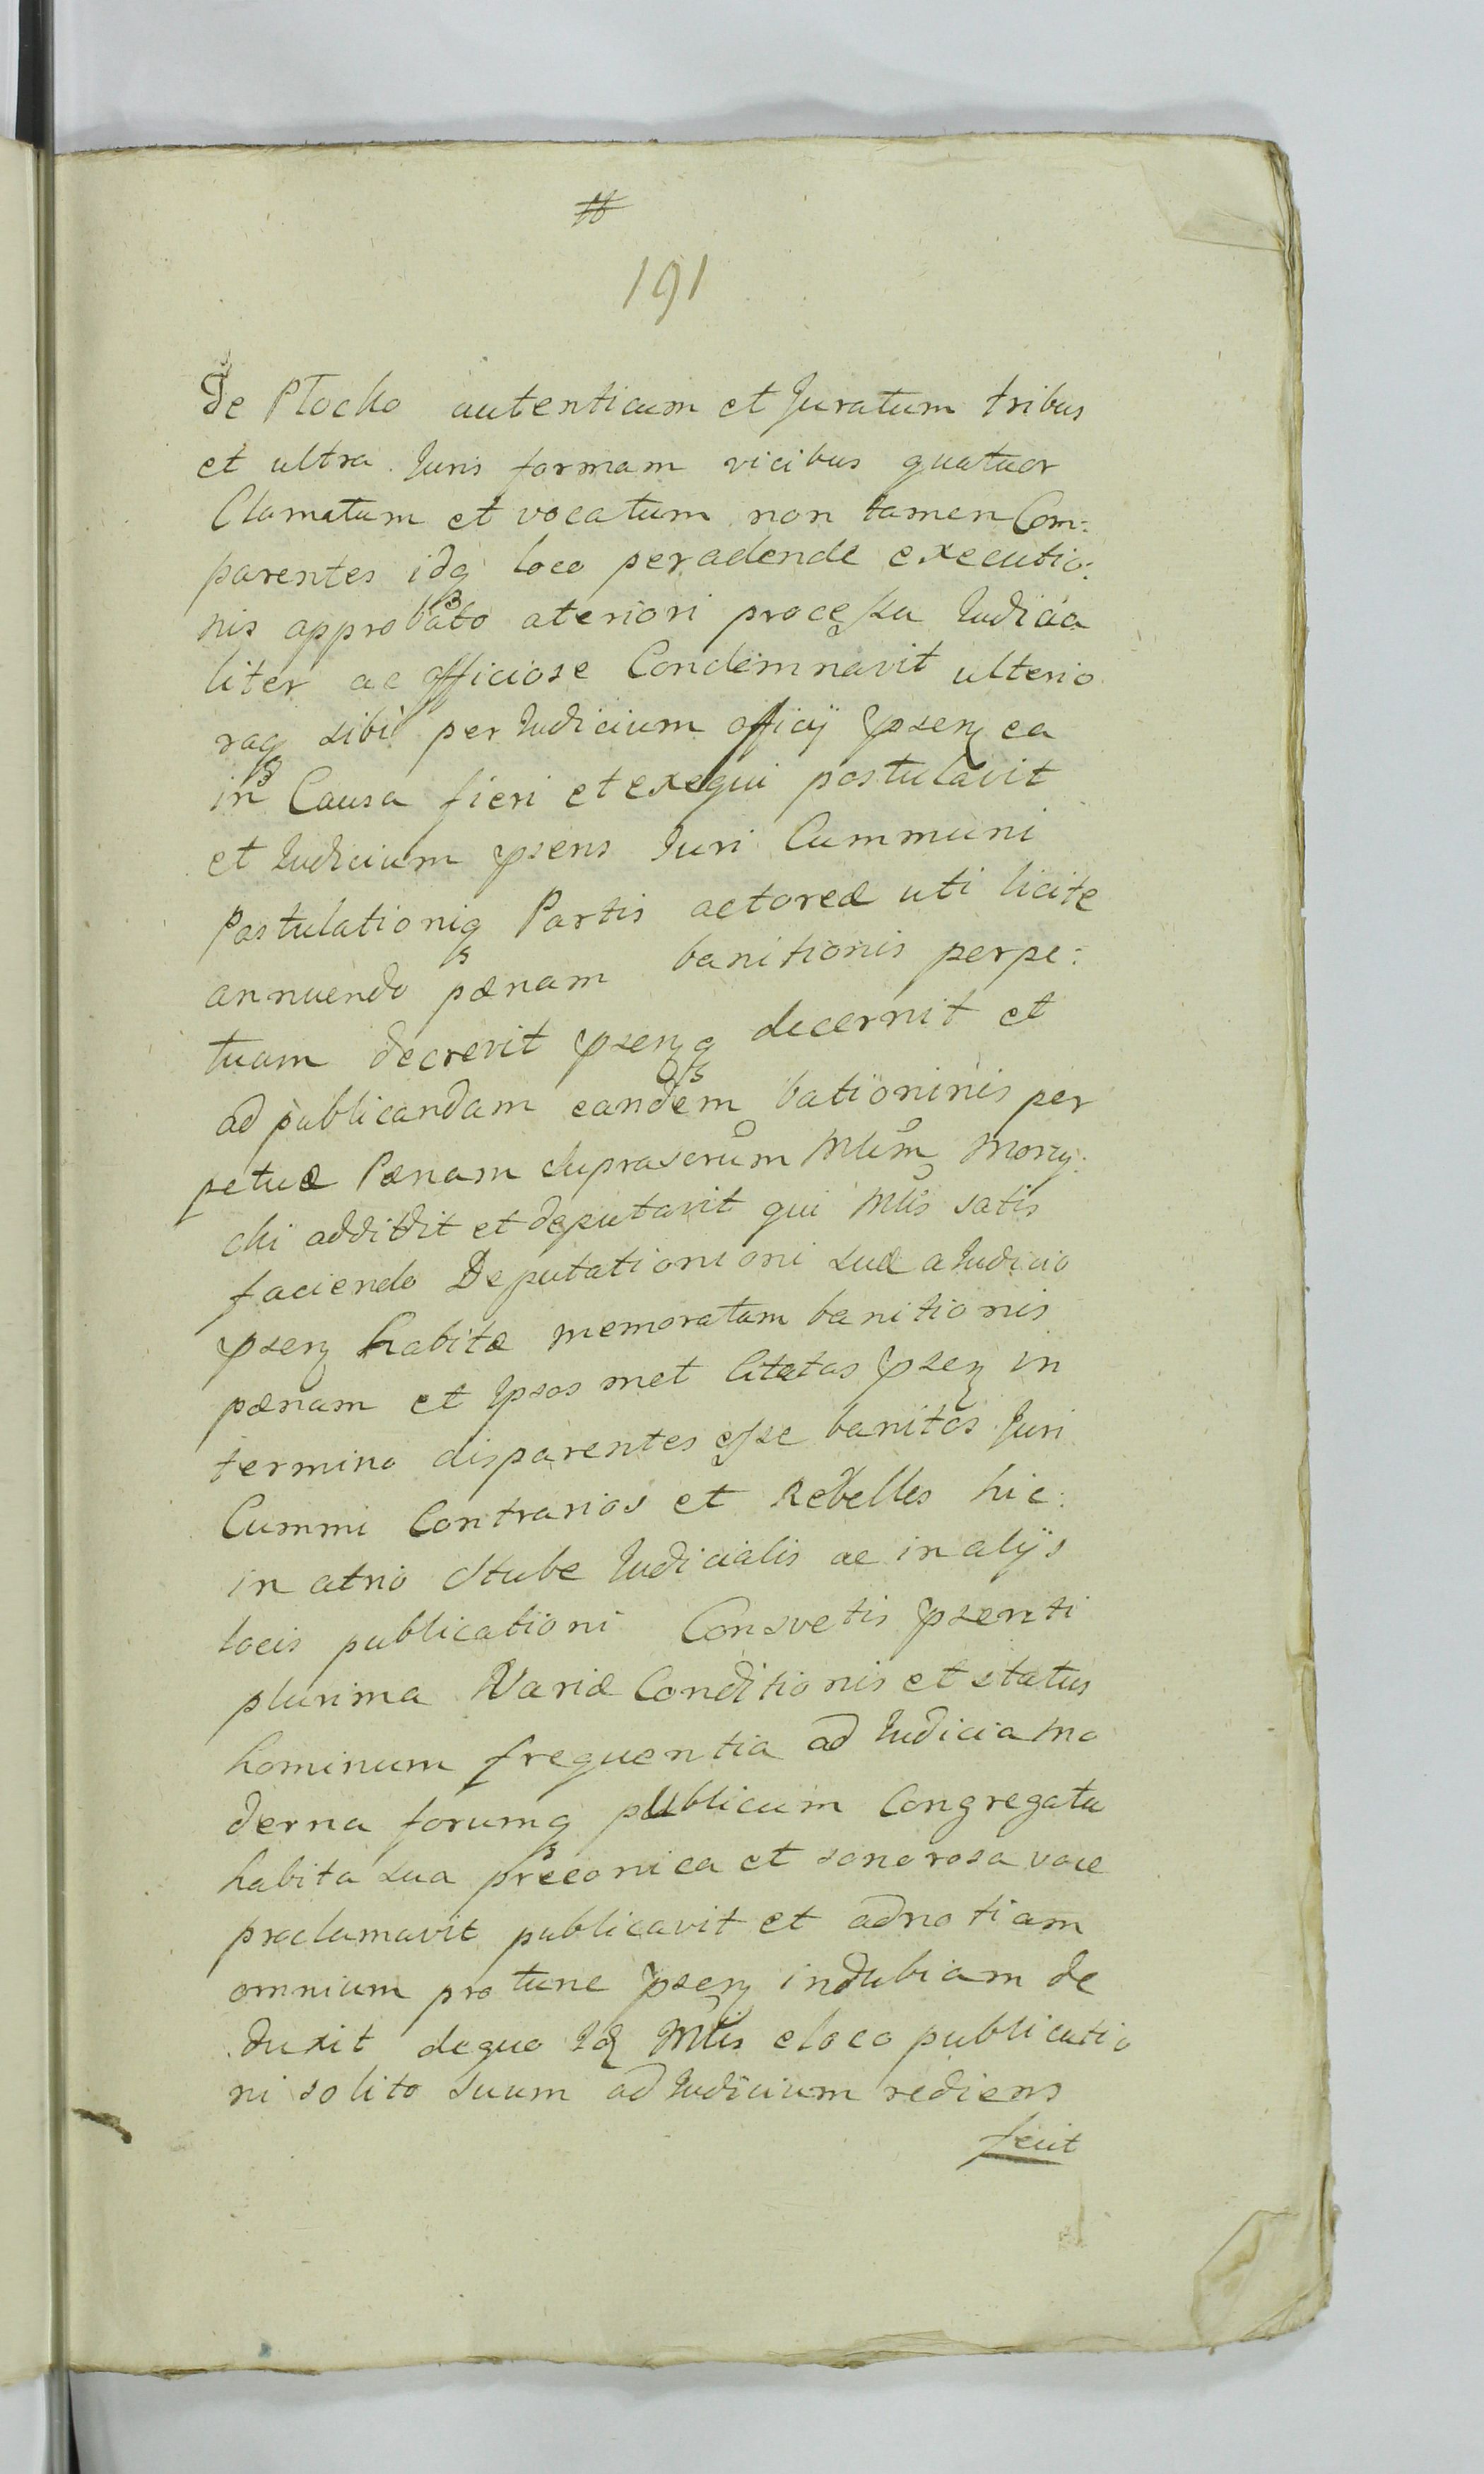 191
de Plocko autenticum et Juratum tribus
et ultra Juris formam vicibus quatuor
Clamatum et vocatum non tamen Com:
parentes idq3 loco peradende executio:
nis approbato ateriori processu Judicia
liter ac officiose Condemnavit ulterio
raq3 sibi per Judicium officij psen ea
in Causa fieri et exequi postulavit
et Judicium psens Juri Cummuni
Postulationiq3 Partis actoreæ uti licite
annuendo pænam banitionis perpe:
tuam decrevit psenq3 decernit et
ad publicandam eandem bationinis per
petuæ Pænam suprascrum Mlem Morzy:
cki addidit et deputavit qui Mlis satis
faciendo Deputationioni suæ a Judicio
psen habitæ memoratam banitionis
pænam et Ipsos met Citatos psen in
termino disparentes esse banitos Juri
Cummi Contrarios et Rebelles hic:
in atrio Stube Judicialis ac in alijs
locis publicationi Consvetis psenti
plurima Variæ Conditionis et status
hominum frequentia ad Judicia mo
derna forumq3 publicum Congregata
habita sua præconica et sonorosa voce
proclamavit publicavit et ad notiam
omnium pro tunc psen indubiam de
duxit dequo Id Mlis eloco publicatio
ni solito suum ad Judicium rediens
fecit